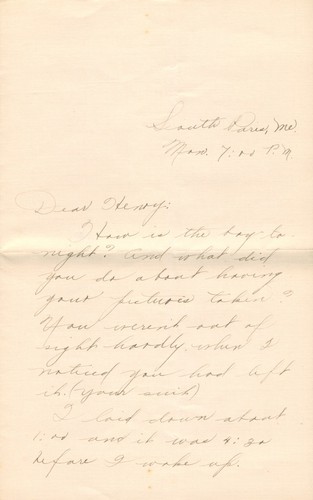 South Paris, Me.
Mon. 7:00 P.M.
Dear Henry:
How is the boy to-
night? And what did
you do about having
your pictures taken?
You weren't out of
sight hardly when I
noticed you had left
it. (your suit)
I laid down about
1:00 and it was 4:20
before I woke up.